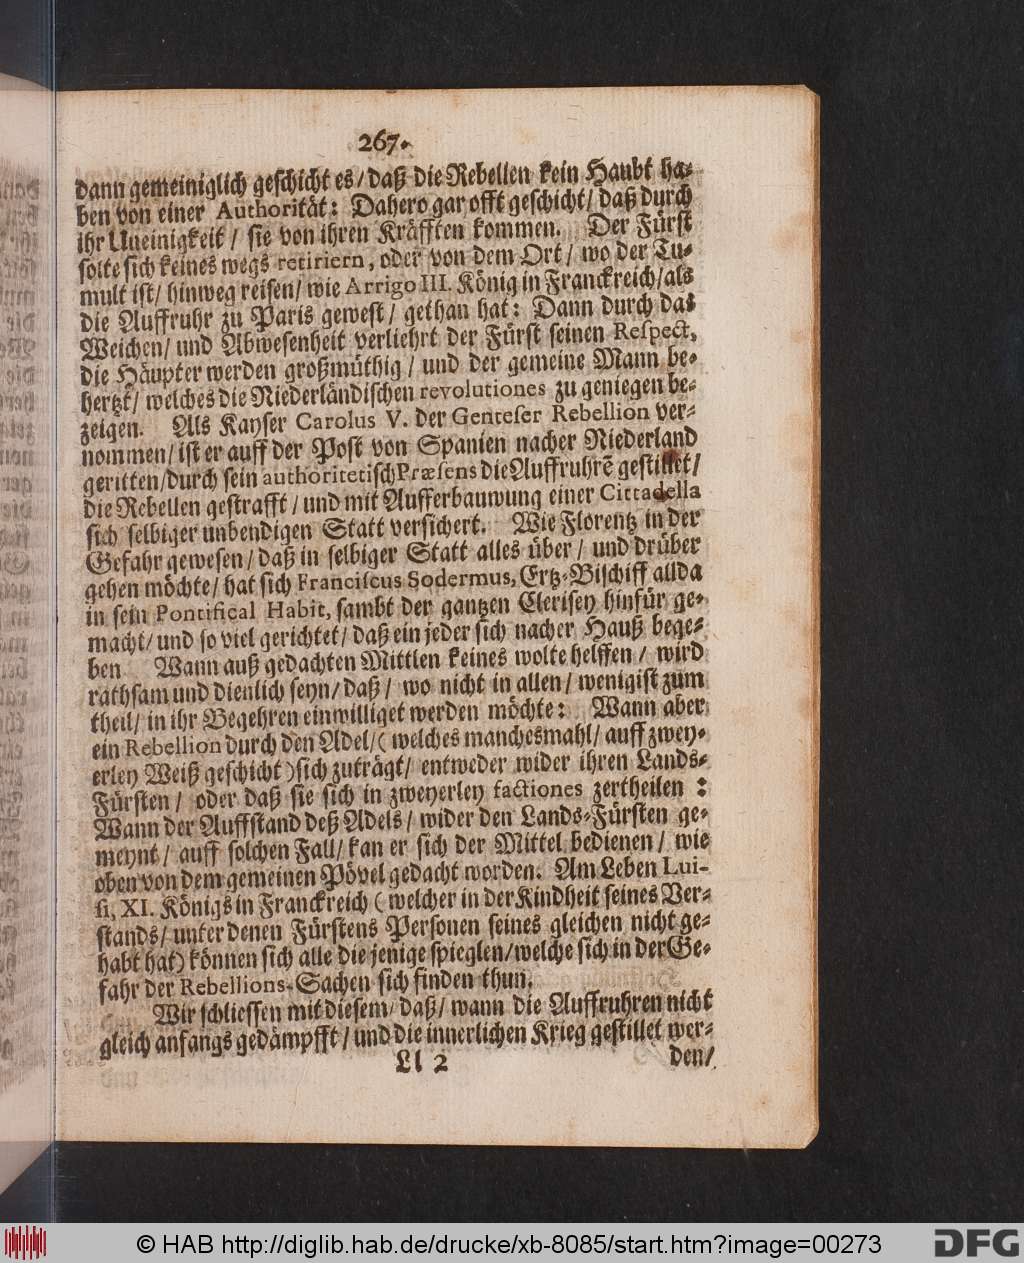 267.
dann gemeiniglich geschicht es/ daß die Rebellen kein Haubt ha-
ben von einer Authorität: Dahero gar offt geschicht/ daß durch
ihr Uneinigkeit/ sie von ihren Kräfften kommen. Der Fürst
solte sich keines wegs retiriern, oder von dem Ort/ wo der Tu-
mult ist/ hinweg reisen/ wie Arrigo III. König in Franckreich/ als
die Auffruhr zu Paris gewest/ gethan hat: Dann durch das
Weichen/ und Abwesenheit verliehrt der Fürst seinen Respect,
die Häupter werden großmüthig/ und der gemeine Mann be-
hertzt/ welches die Niederländischen revolutiones zu geniegen be-
zeigen. Als Kayser Carolus V. der Genteser Rebellion ver-
nommen/ ist er auff der Post von Spanien nacher Niederland
geritten/ durch sein authoritetisch Præsens die Auffruhrẽ gestillet/
die Rebellen gestrafft/ und mit Aufferbauwung einer Cittadella
sich selbiger unbendigen Statt versichert. Wie Florentz in der
Gefahr gewesen/ daß in selbiger Statt alles über/ und drüber
gehen möchte/ hat sich Franciscus Sodermus, Ertz-Bischiff allda
in sein Pontifical Habit, sambt der gantzen Clerisey hinfür ge-
macht/ und so viel gerichtet/ daß ein jeder sich nacher Hauß bege-
ben Wann auß gedachten Mittlen keines wolte helffen/ wird
rathsam und dienlich seyn/ daß/ wo nicht in allen/ wenigist zum
theil/ in ihr Begehren einwilliget werden möchte: Wann aber
ein Rebellion durch den Adel/ ( welches manchesmahl/ auff zwey-
erley Weiß geschicht ) sich zuträgt/ entweder wider ihren Lands-
Fürsten/ oder daß sie sich in zweyerley factiones zertheilen :
Wann der Auffstand deß Adels/ wider den Lands-Fürsten ge-
meynt/ auff solchen Fall/ kan er sich der Mittel bedienen/ wie
oben von dem gemeinen Pövel gedacht worden. Am Leben Lui-
si, XI. Königs in Franckreich ( welcher in der Kindheit seines Ver-
stands/ unter denen Fürstens Personen seines gleichen nicht ge-
habt hat) können sich alle die jenige spieglen/ welche sich in der Ge-
fahr der Rebellions-Sachen sich finden thun.
Wir schliessen mit diesem/ daß/ wann die Auffruhren nicht
gleich anfangs gedämpfft/ und die innerlichen Krieg gestillet wer-
Ll 2 den/
© HAB http://diglib.hab.de/drucke/xb-8085/start.htm?image=00273 DFG